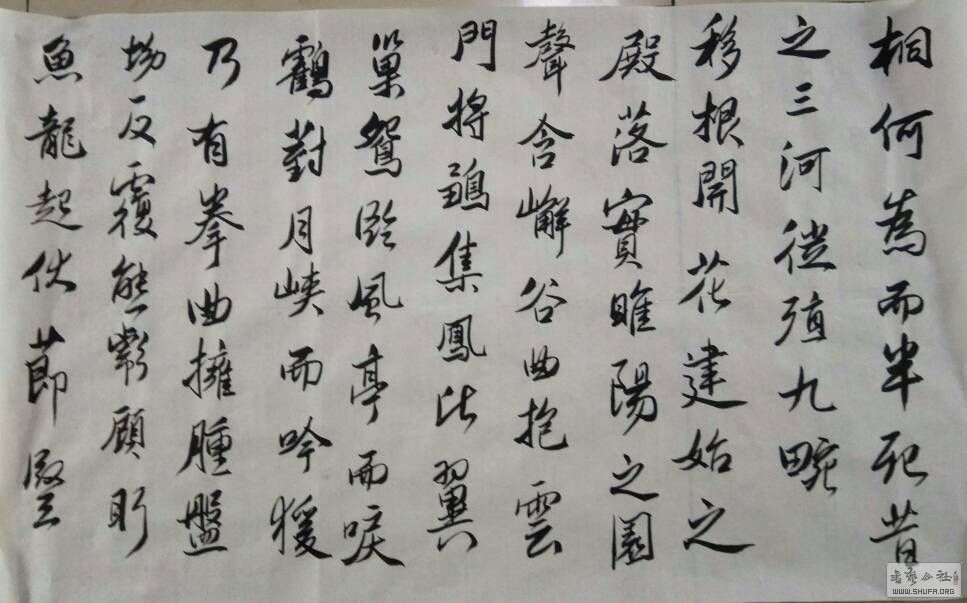 桐何為而半死昔
之三河徙殖九畹
移根開花建始之
殿落實睢陽之園
聲含嶰谷曲抱雲
門將鶵集鳳比翼
巢鴛臨風亭而唳
鶴對月峽而吟猨
乃有拳曲擁腫盤
坳反覆熊彪顧盻
魚龍起伏節豎
书艺公社
WWW.SHUFA.ORG